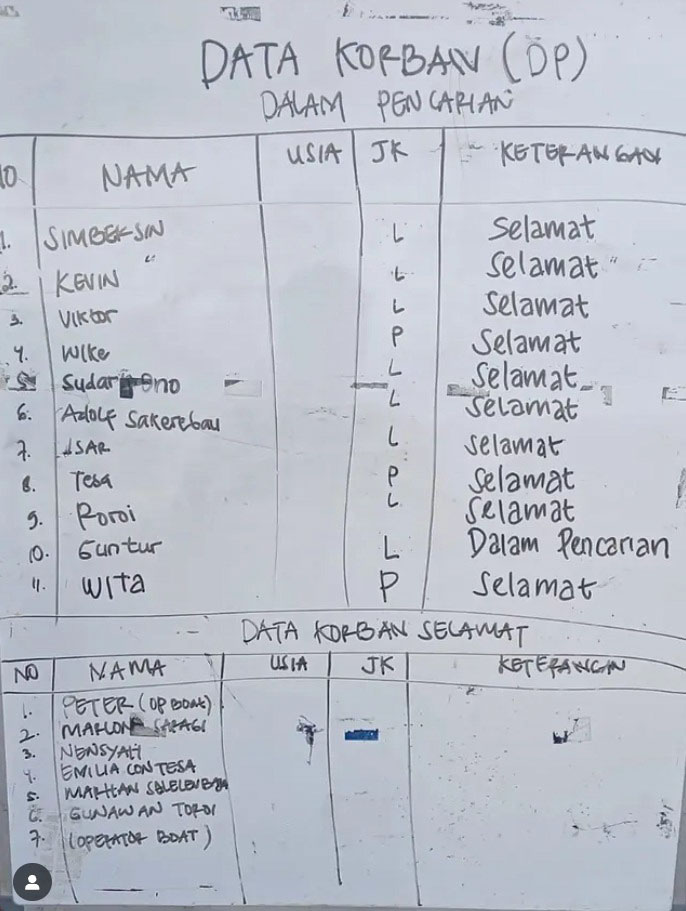 DATA KORBAN (DP)
DALAM PENCARIAN
NO NAMA USIA JK KETERANGAN
1. SIMBEKSIN L Selamat
2. KEVIN " L Selamat "
3. Viktor L Selamat
4. Wike P Selamat
5. Sudar ono L Selamat
6. Adolf Sakerebau L Selamat
7. ISAR L Selamat
8. Tesa P Selamat
9. Roroi L Selamat
10. Guntur L Dalam Pencarian
11. WITA P Selamat
DATA KORBAN SELAMAT
NO NAMA USIA JK KETERANGAN
1. PETER (OP BOAT)
2. MARLON
3. NENSYAH
4. EMILIA CONTESA
5. MARHAN
6. GUNAWAN TOROI
7. (OPERATOR BOAT)